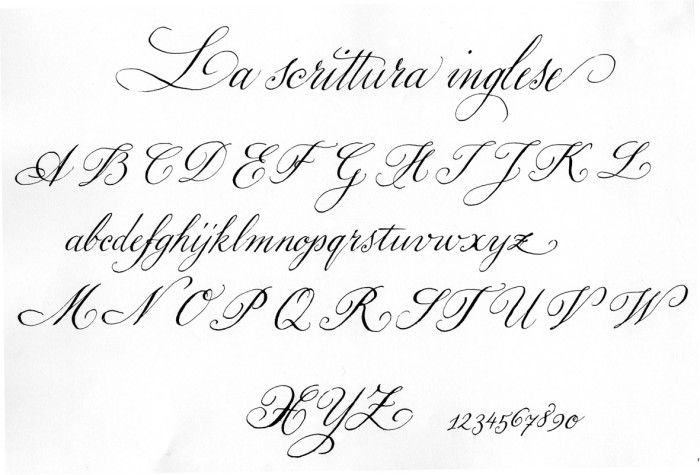 La scrittura inglese
A B C D E F G H I J K L
abcdefghijklmnopqrstuvwxyz
M N O P Q R S T U V W
X Y Z 1234567890